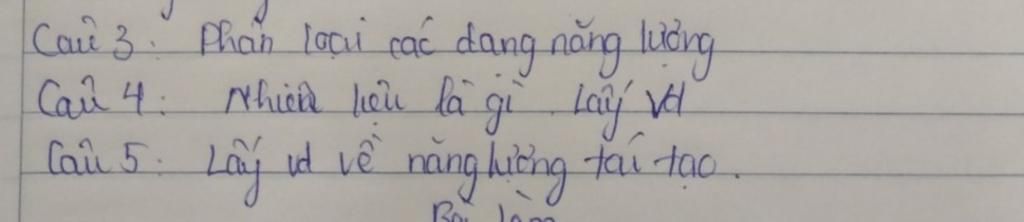 Câu 3: Phân loại các dạng năng lượng
Câu 4: Nhiên liệu là gì. Lấy vd
Câu 5: Lấy vd về năng lượng tái tạo.
Bài làm